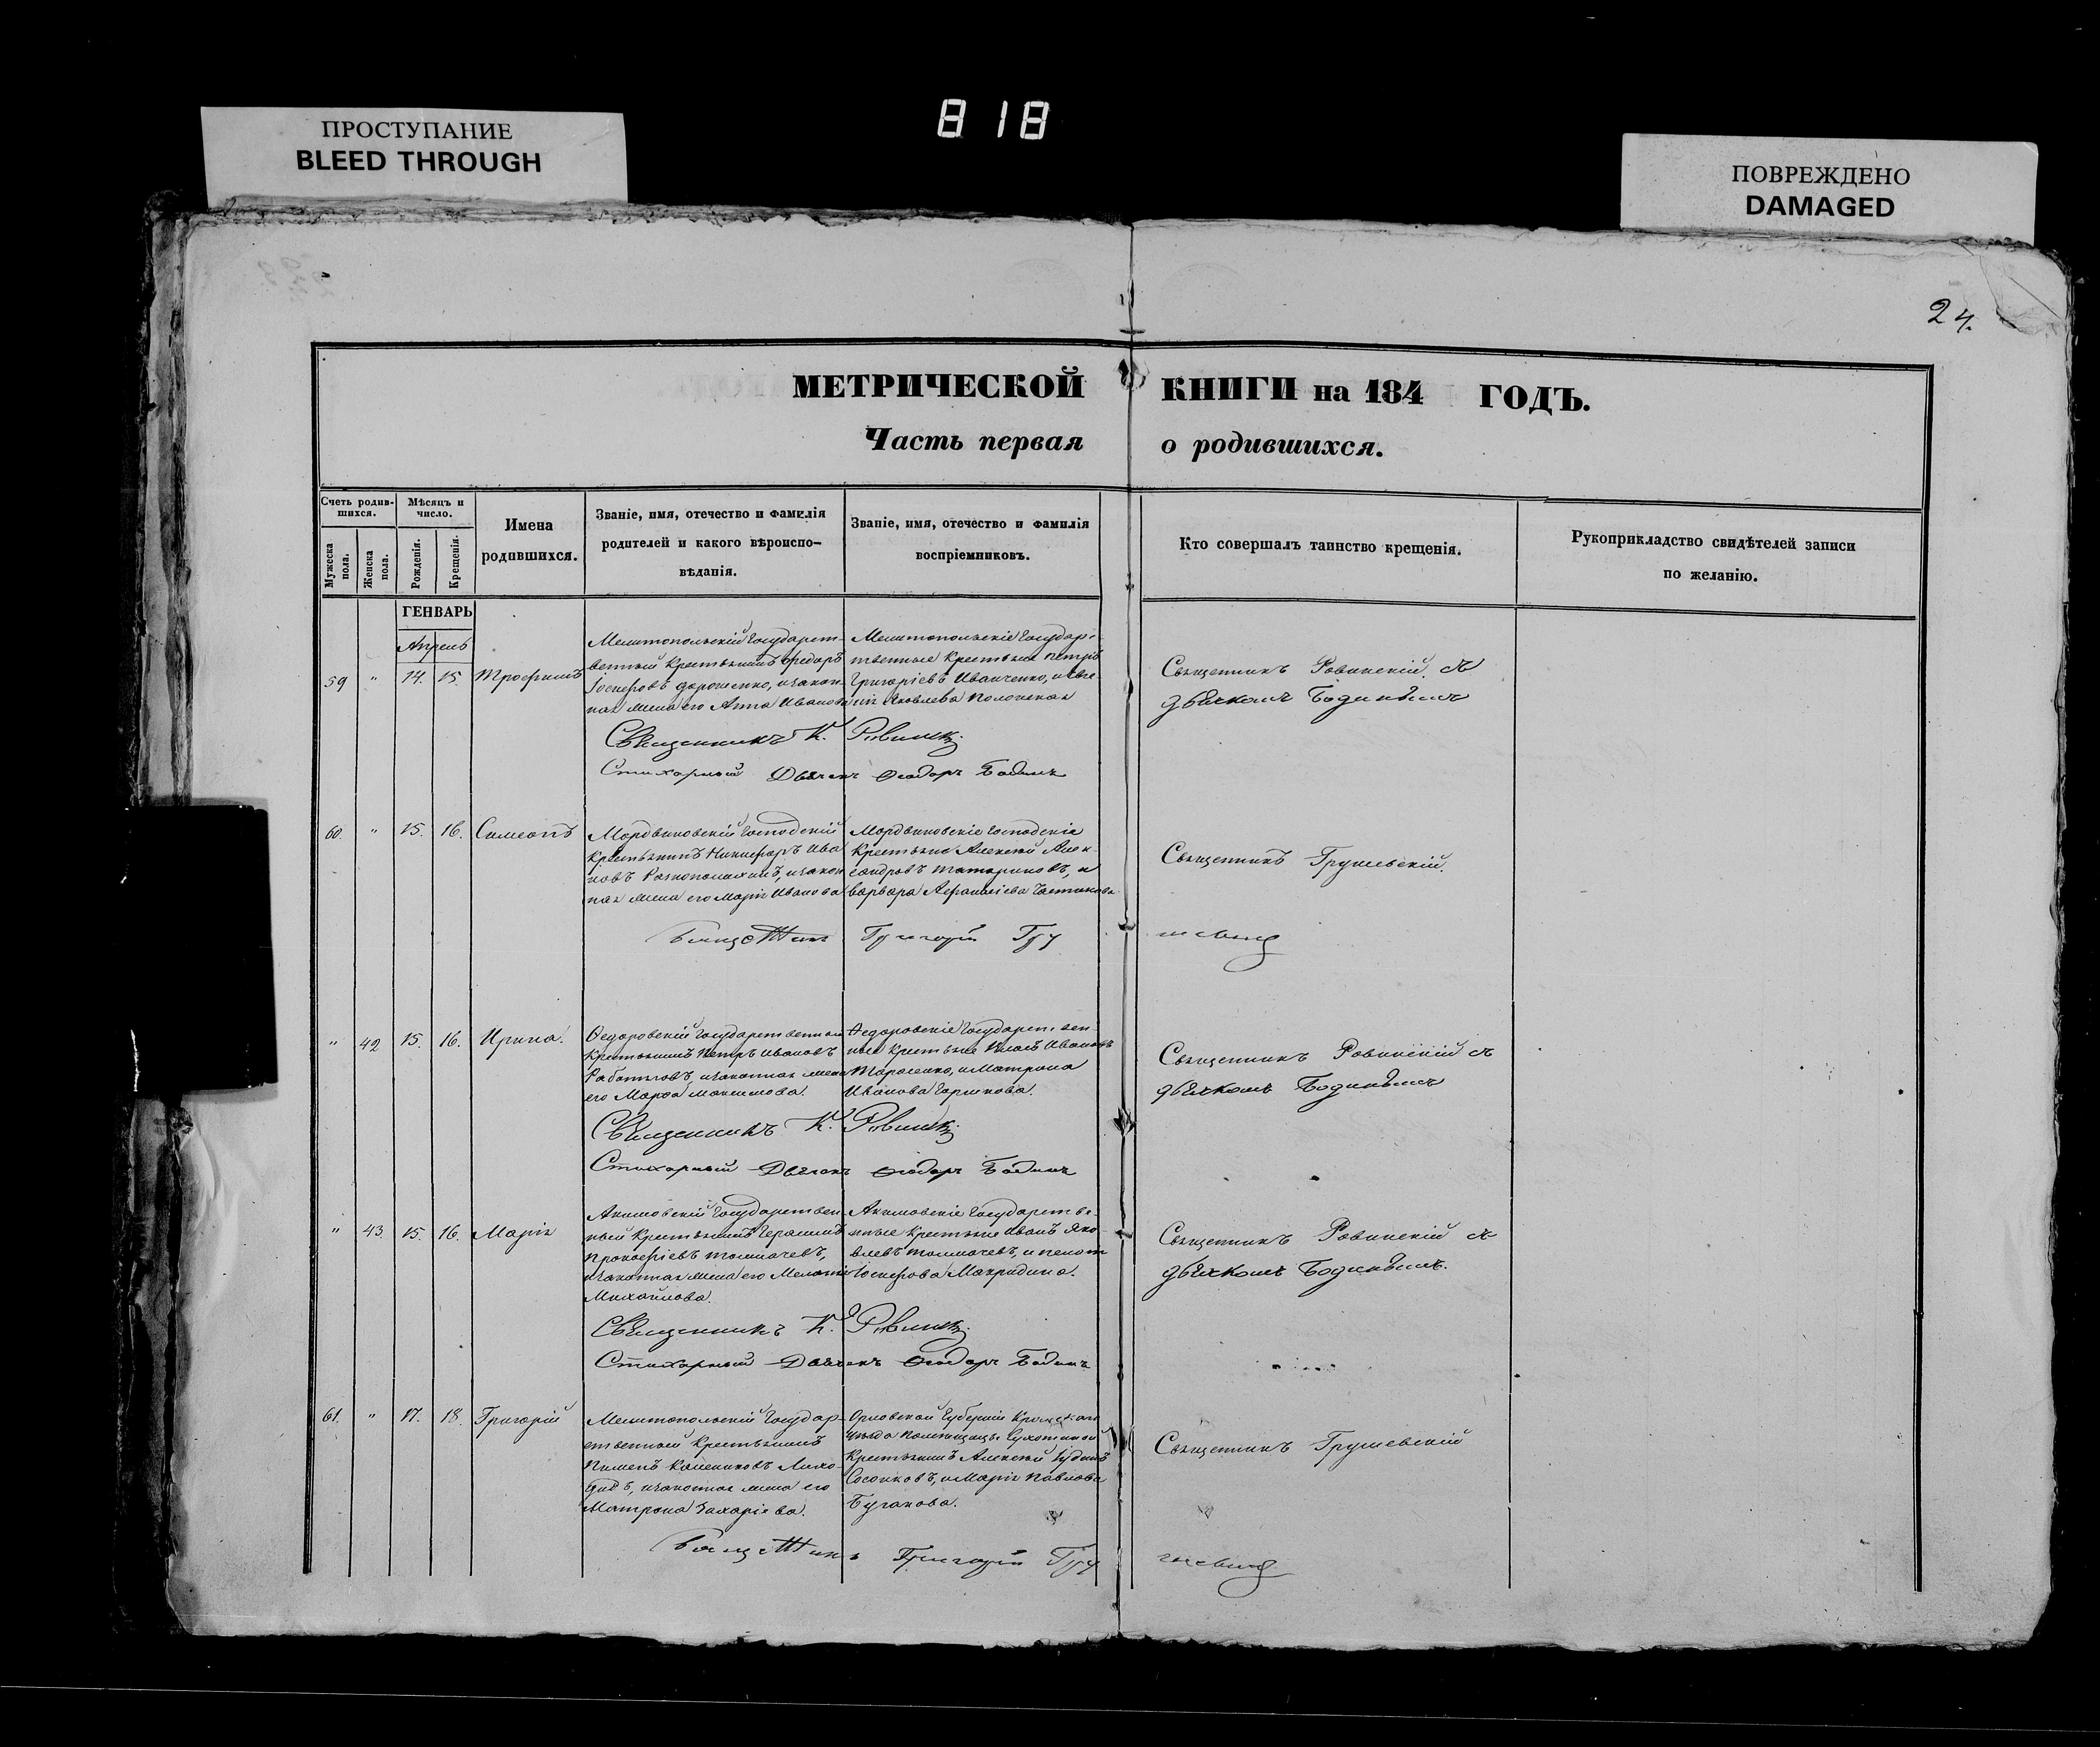 ПРОСТУПАНИЕ
BLEED THROUGH
818
ПОВРЕЖДЕНО
DAMAGED
24.
МЕТРИЧЕСКОЙ КНИГИ на 184 ГОДЪ.
Часть первая о родившихся.
Счетъ родив-
шихся.
Мужеска пола.
Женска пола.
Мѣсяцъ и
число.
Рожденія.
Крещенія.
Имена
родившихся.
Званіе, имя, отечество и фамилія
родителей и какого вѣроиспо-
вѣданія.
Званіе, имя, отечество и фамилія
воспріемниковъ.
Кто совершалъ таинство крещенія.
Рукоприкладство свидѣтелей записи
по желанію.
ГЕНВАРЬ
Апрель
59 " 14. 15. Трофимъ
Мелитопольскій Государст-
венный Крестьянинъ Федоръ
Іосифовъ Дорошенко, и закон-
ная жена его Анна Иванова
Мелитопольскіе Государ-
ственные Крестьяне Петръ
Григоріевъ Иванченко, и
Яковлева Полонская
Священникъ Ровинскій съ
дьячкомъ Бодинымъ
Священникъ К. Ровинскій
Стихарный Дьячекъ Ѳеодоръ Бодинъ
60. " 15. 16. Симеонъ
Мордвиновскій Господскій
Крестьянинъ Никифоръ Ива
новъ и закон
ная жена его Марія Иванова
Мордвиновскіе Господскіе
Крестьяне Алексей Алек-
сандровъ Татариновъ, и
Варвара Афанасіева
Священникъ Грушевскій.
Священникъ Григорій Грушевскій
" 42 15. 16. Ирина.
Ѳедоровскій Государственный
Крестьянинъ Петръ Ивановъ
и законная жена
его Марѳа Максимова.
Ѳедоровскіе Государствен-
ные Крестьяне Власъ Ивановъ
Тарасенко, и Матрона
Иванова Горшкова.
Священникъ Ровинскій съ
дьячкомъ Бодинымъ
Священникъ К. Ровинскій
Стихарный Дьячекъ Ѳеодоръ Бодинъ
" 43. 15. 16. Марія
Акимовскій Государствен
ный Крестьянинъ Герасимъ
Прокофіевъ Толмачевъ,
и законная жена его Меланія
Михайлова.
Акимовскіе Государстве-
нные Крестьяне Иванъ Яко-
влевъ Толмачевъ, и
Іосифова Макридина.
Священникъ Ровинскій съ
дьячкомъ Бодинымъ.
Священникъ К. Ровинскій
Стихарный Дьячекъ Ѳеодоръ Бодинъ
61. " 17. 18. Григорій
Мелитопольскій Государ-
ственный Крестьянинъ
Пименъ
и законная жена его
Матрона Захаріева.
Орловской Губерніи Кромскаго
уезда помещицы Сухотиной
Крестьянинъ Алексей
и Марія Павлова
Бугакова.
Священникъ Грушевскій
Священникъ Григорій Грушевскій